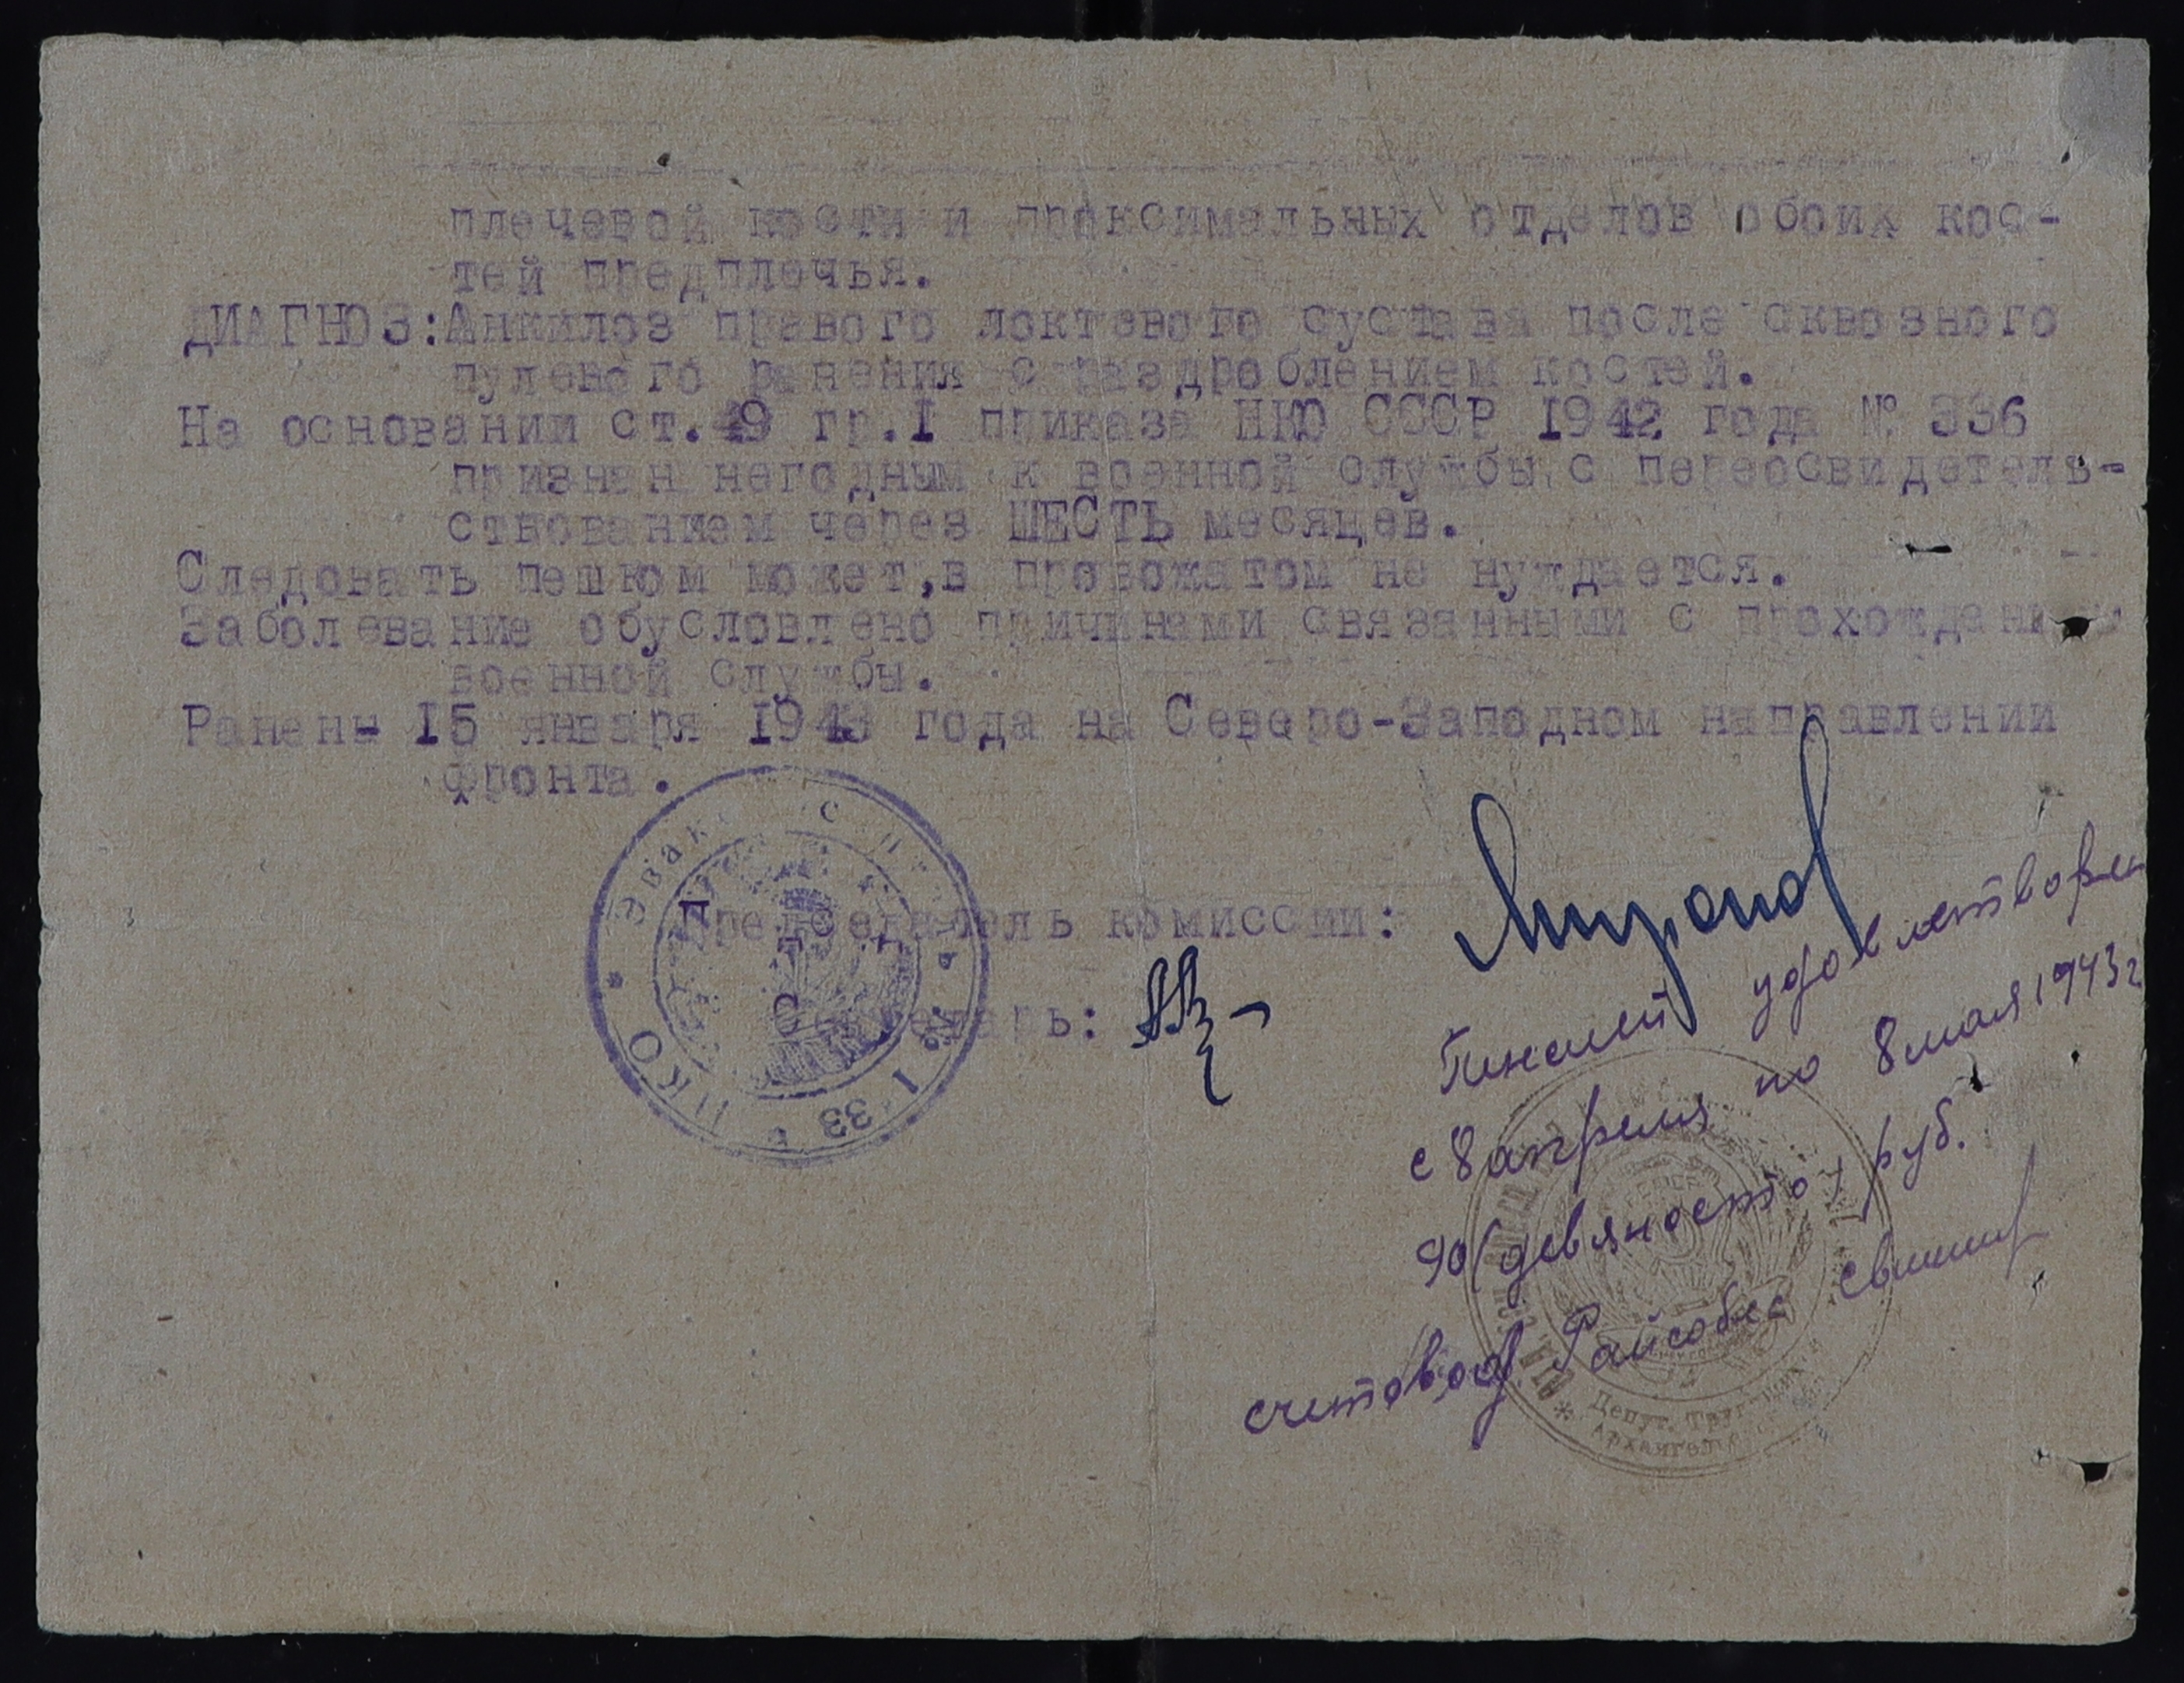 плечевой кости и проксимальных отделов обоих кос-
тей предплечья.
ДИАГНОЗ: Анкилоз правого локтевого сустава после сквозного
пулевого ранения с раздроблением костей.
На основании ст. 49 гр. I приказа НКО СССР 1942 года № 336
признан негодным к военной службы с переосвидетель-
ствованием через ШЕСТЬ месяцев.
Следовать пешком может, в провожатом не нуждается.
Заболевание обусловлено причинами связанными с прохождани
военной службы.
Ранен - 15 января 1943 года на Северо-Западном направлении
фронта.
Председатель комиссии: Миронов
Секретарь:
НКО * Эвак
Пенсией удовлетворен
с 8 апреля по 8 мая 1943 г
90 (девяносто) руб.
счетовод Райсобес
Депут. Труд
Архангельск